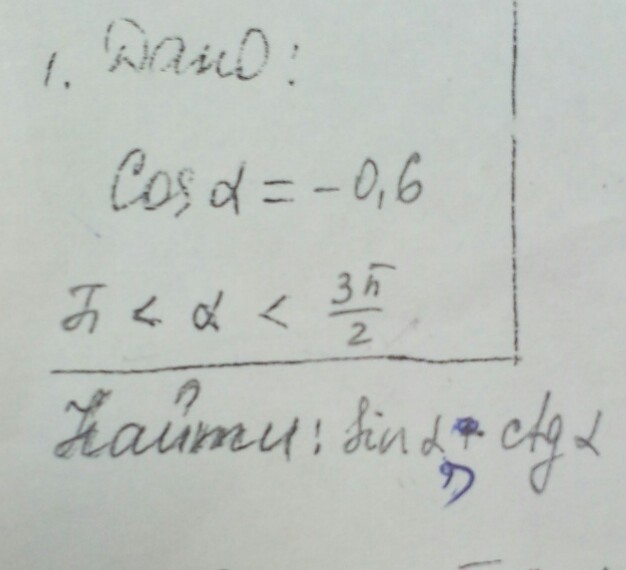 1. Дано:
Cos α = -0,6
π < α < 3π/2
Найти: Sin α, ctg α